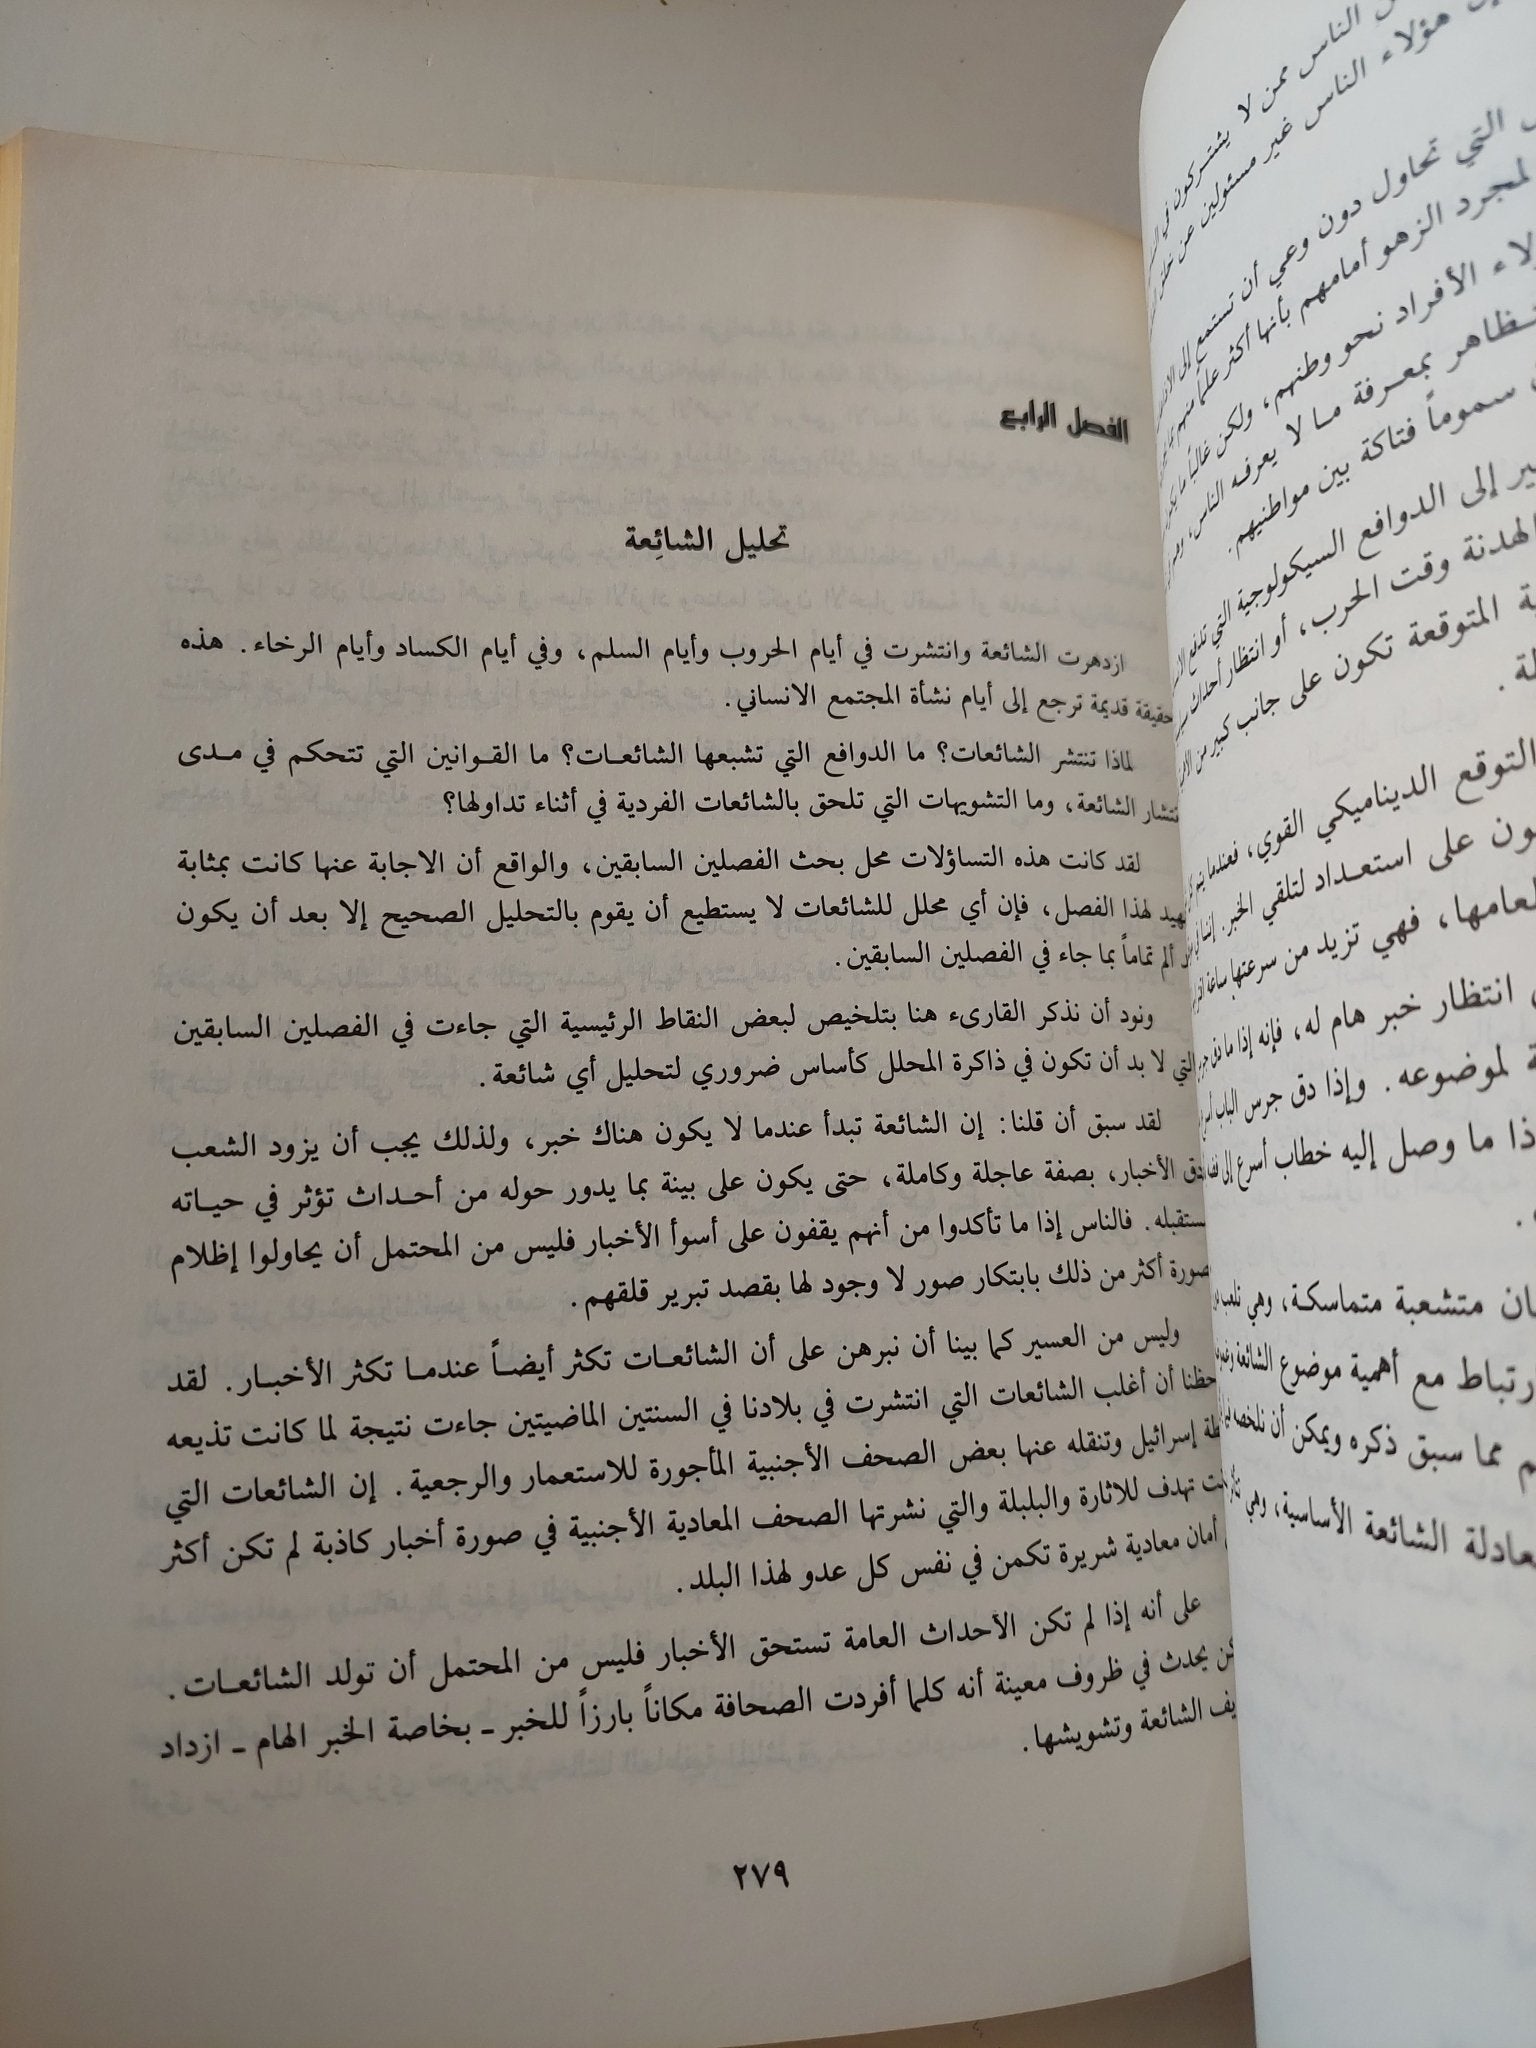 ن الناس ممن لا يشتركون في
هؤلاء الناس غير مسئولين عن خلق
التي تحاول دون وعي أن تستمع إلى
لمجرد الزهو أمامهم بأنها أكثر علماً منهم
الأفراد نحو وطنهم، ولكن غالباً ما يكون
بمعرفة ما لا يعرفه الناس،
سموماً فتاكة بين مواطنيهم.
إلى الدوافع السيكولوجية التي تدفع
الهدنة وقت الحرب، أو انتظار أحداث
المتوقعة تكون على جانب كبير من
التوقع الديناميكي القوي، فعندما
على استعداد لتلقي الخبر.
فهي تزيد من سرعتها ساعة
انتظار خبر هام له، فإنه إذا ما دق
لموضوعه. وإذا دق جرس الباب
ما وصل إليه خطاب أسرع إلى
متشعبة متماسكة، وهي تلعب
مع أهمية موضوع الشائعة
مما سبق ذكره ويمكن أن نلخصه
الشائعة الأساسية، وهي
الفصل الرابع
تحليل الشائِعة
ازدهرت الشائعة وانتشرت في أيام الحروب وأيام السلم، وفي أيام الكساد وأيام الرخاء. هذه
حقيقة قديمة ترجع إلى أيام نشأة المجتمع الانساني.
لماذا تنتشر الشائعات؟ ما الدوافع التي تشبعها الشائعات؟ ما القوانين التي تتحكم في مدى
الشائعة، وما التشويهات التي تلحق بالشائعات الفردية في أثناء تداولها؟
لقد كانت هذه التساؤلات محل بحث الفصلين السابقين، والواقع أن الاجابة عنها كانت بمثابة
لهذا الفصل، فإن أي محلل للشائعات لا يستطيع أن يقوم بالتحليل الصحيح إلا بعد أن يكون
ألم تماماً بما جاء في الفصلين السابقين.
ونود أن نذكر القارىء هنا بتلخيص لبعض النقاط الرئيسية التي جاءت في الفصلين السابقين
التي لا بد أن تكون في ذاكرة المحلل كأساس ضروري لتحليل أي شائعة.
لقد سبق أن قلنا: إن الشائعة تبدأ عندما لا يكون هناك خبر، ولذلك يجب أن يزود الشعب
الأخبار، بصفة عاجلة وكاملة، حتى يكون على بينة بما يدور حوله من أحداث تؤثر في حياته
فالناس إذا ما تأكدوا من أنهم يقفون على أسوأ الأخبار فليس من المحتمل أن يحاولوا إظلام
أكثر من ذلك بابتكار صور لا وجود لها بقصد تبرير قلقهم.
وليس من العسير كما بينا أن نبرهن على أن الشائعات تكثر أيضاً عندما تكثر الأخبار. لقد
أن أغلب الشائعات التي انتشرت في بلادنا في السنتين الماضيتين جاءت نتيجة لما كانت تذيعه
إسرائيل وتنقله عنها بعض الصحف الأجنبية المأجورة للاستعمار والرجعية. إن الشائعات التي
تهدف للاثارة والبلبلة والتي نشرتها الصحف المعادية الأجنبية في صورة أخبار كاذبة لم تكن أكثر
أمان معادية شريرة تكمن في نفس كل عدو لهذا البلد.
على أنه إذا لم تكن الأحداث العامة تستحق الأخبار فليس من المحتمل أن تولد الشائعات.
يحدث في ظروف معينة أنه كلما أفردت الصحافة مكاناً بارزاً للخبر ـ بخاصة الخبر الهام ـ ازداد
الشائعة وتشويشها.
٢٧٩